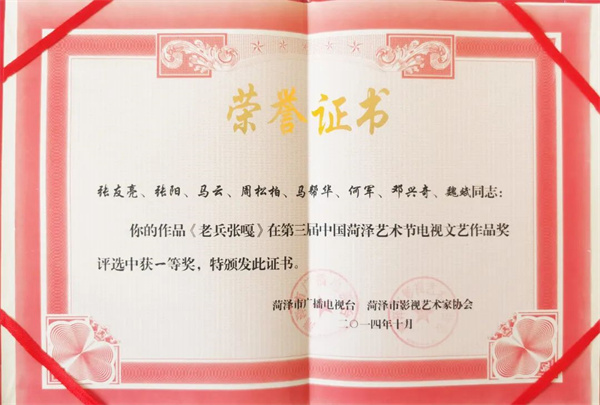 荣誉证书
张友亮、张阳、马云、周松柏、马帮华、何军、邓兴奇、魏斌同志：
你的作品《老兵张嘎》在第三届中国菏泽艺术节电视文艺作品奖
评选中获一等奖，特颁发此证书。
菏泽市广播电视台 菏泽市影视艺术家协会
二〇一四年十月